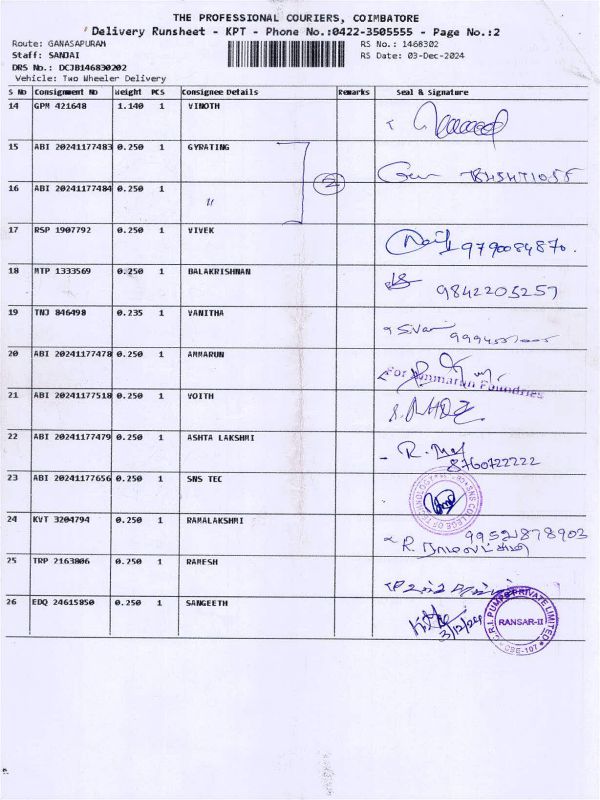 THE PROFESSIONAL COURIERS, COIMBATORE
Delivery Runsheet - KPT - Phone No.:0422-3505555 - Page No.:2
Route: GANASAPURAM RS No.: 1468302
Staff: SANJAI RS Date: 03-Dec-2024
DRS No.: DCJB146830202
Vehicle: Two Wheeler Delivery
S No Consignment No Weight PCS Consignee Details Remarks Seal & Signature
14 GPM 421648 1.140 1 VINOTH
15 ABI 20241177483 0.250 1 GYRATING
16 ABI 20241177484 0.250 1 〃 2
17 RSP 1907792 0.250 1 VIVEK 9790084870.
18 MTP 1333569 0.250 1 BALAKRISHNAN 9842205257
19 TNJ 846498 0.235 1 VANITHA
20 ABI 20241177478 0.250 1 AMMARUN For Ammarun Foundries
21 ABI 20241177518 0.250 1 VOITH
22 ABI 20241177479 0.250 1 ASHTA LAKSHMI 8760722222
23 ABI 20241177656 0.250 1 SNS TEC SNS COLLEGE OF TECHNOLOGY
24 KVT 3204794 0.250 1 RAMALAKSHMI 9952878903
25 TRP 2163806 0.250 1 RAMESH
26 EDQ 24615850 0.250 1 SANGEETH 3/12/24 C.R.I. PUMPS PRIVATE LIMITED RANSAR-II